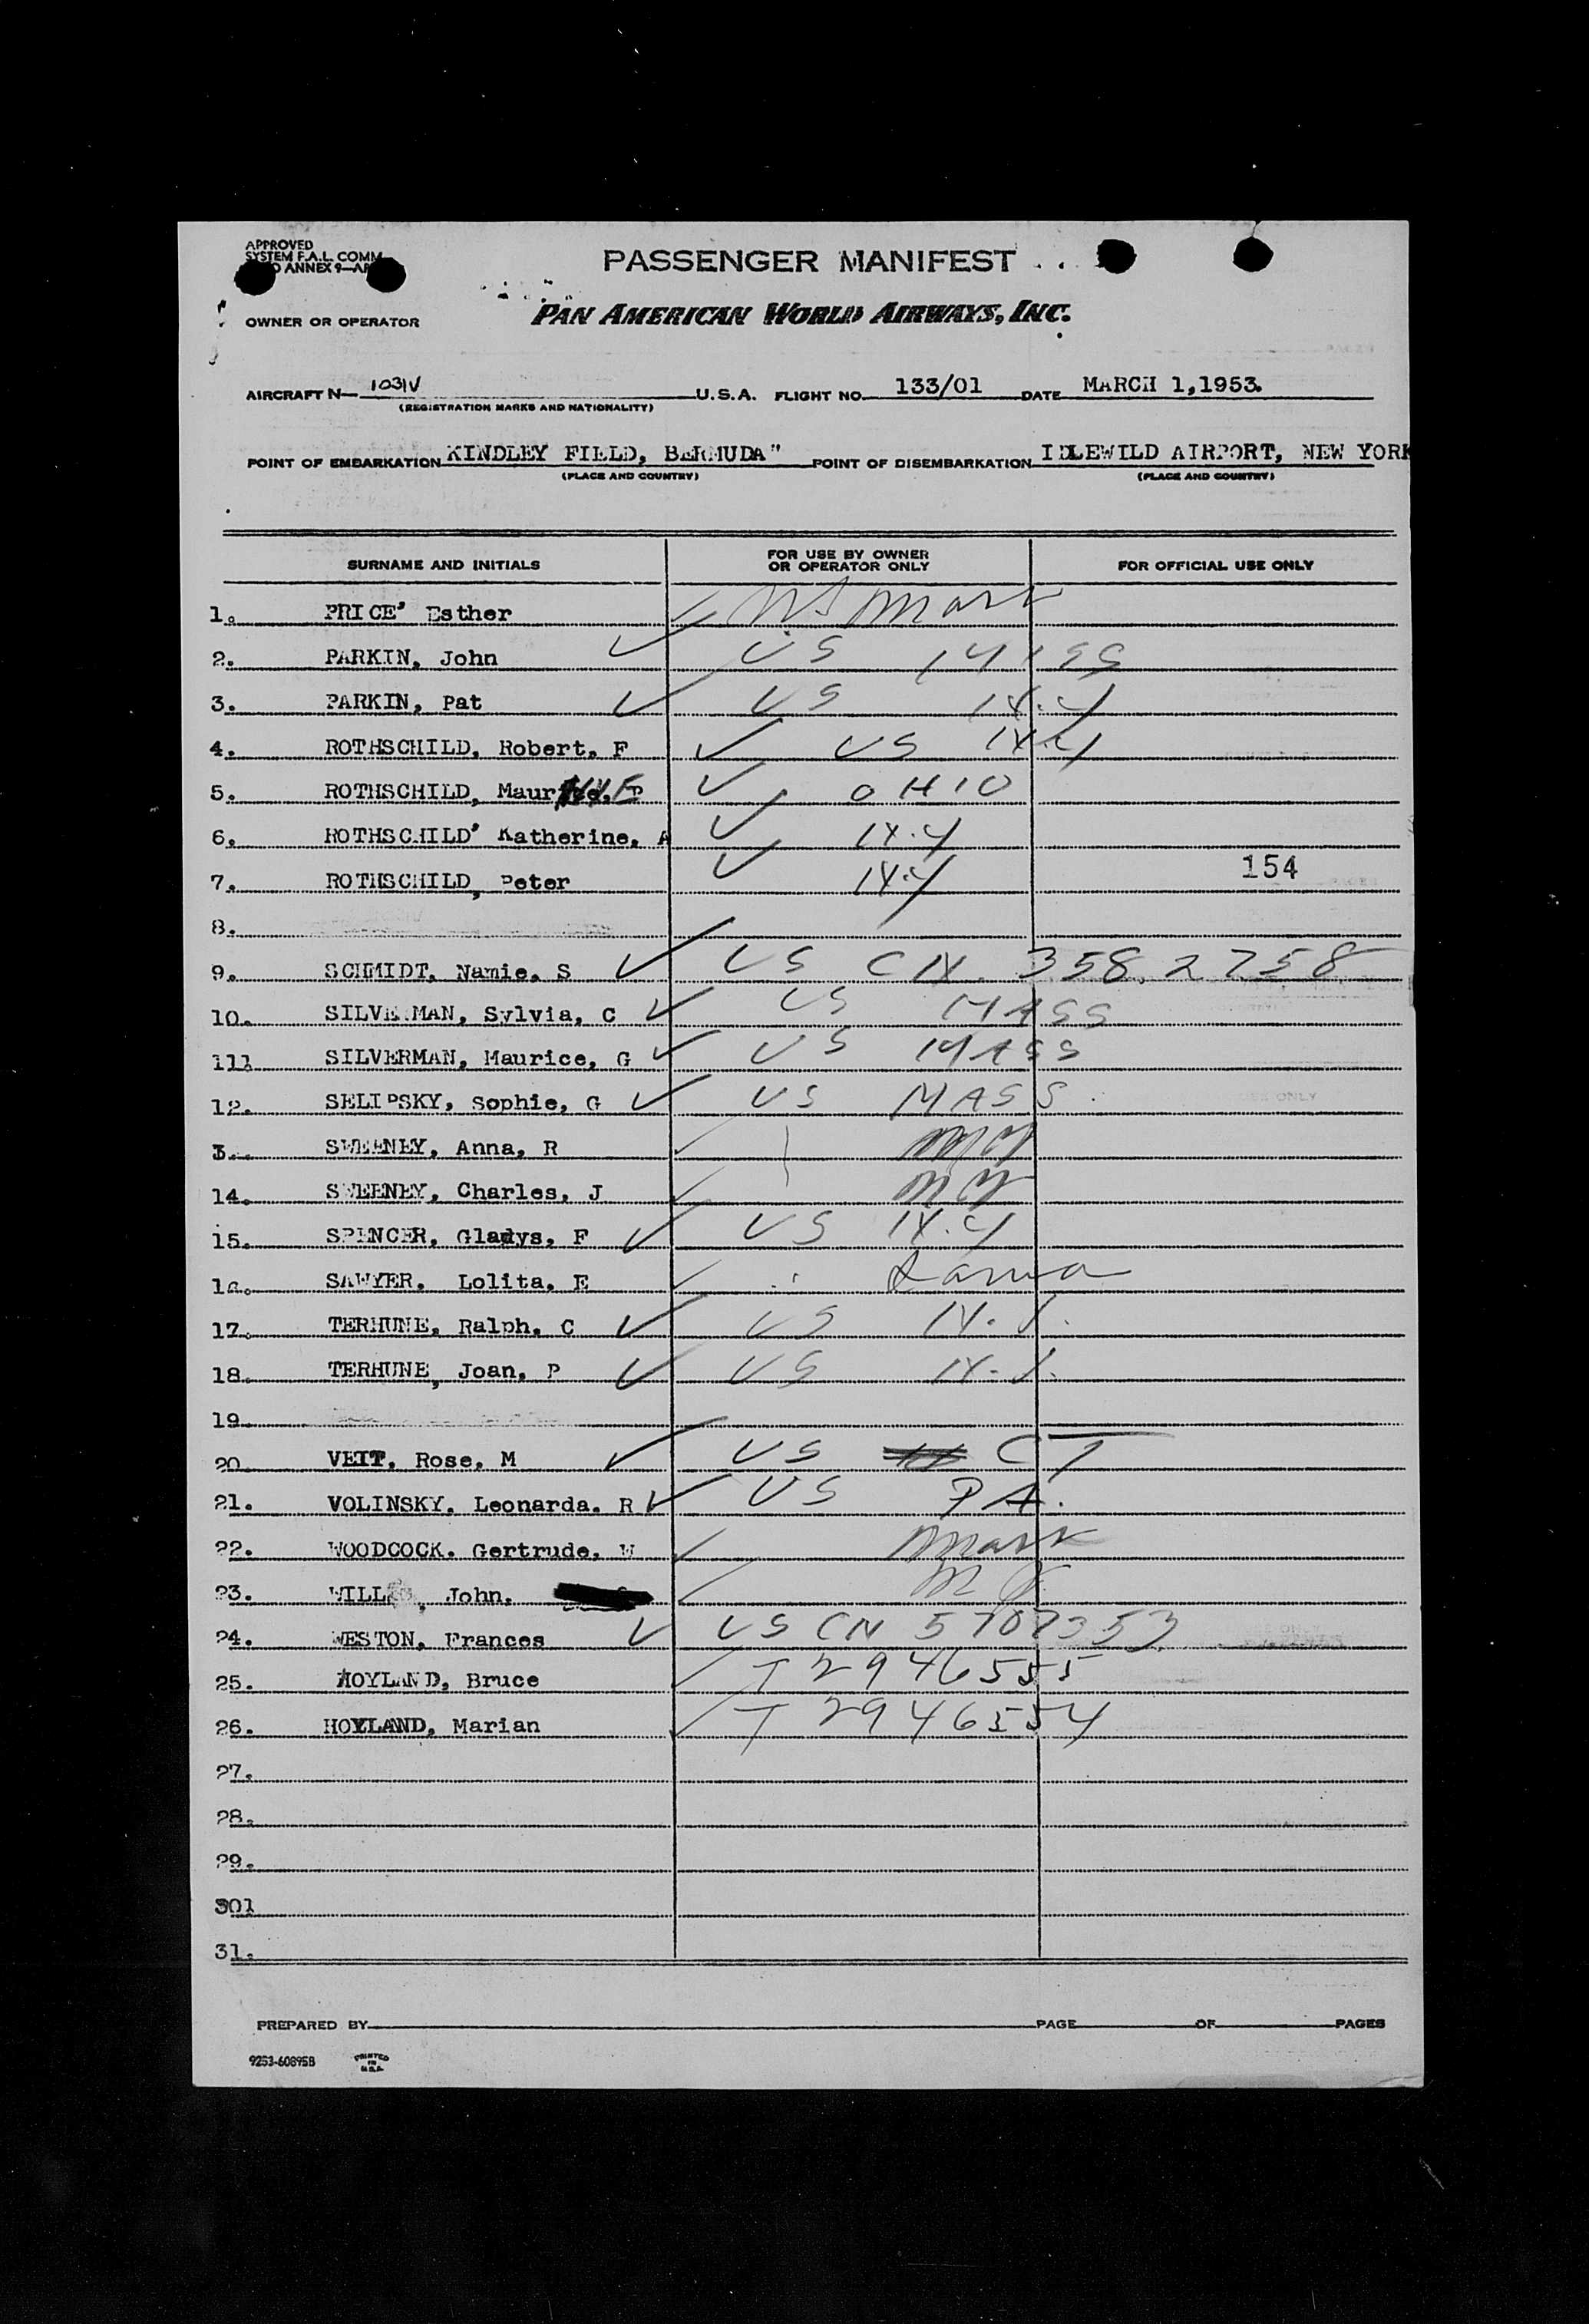 APPROVED
SYSTEM F.A.L. COMM
ANNEX 9—AP
PASSENGER MANIFEST
OWNER OR OPERATOR PAN AMERICAN WORLD AIRWAYS, INC.
AIRCRAFT N— 1031V U.S.A. FLIGHT NO. 133/01 DATE MARCH 1,1953.
(REGISTRATION MARKS AND NATIONALITY)
POINT OF EMBARKATION KINDLEY FIELD, BERMUDA" POINT OF DISEMBARKATION IDLEWILD AIRPORT, NEW YORK
(PLACE AND COUNTRY) (PLACE AND COUNTRY)
SURNAME AND INITIALS FOR USE BY OWNER OR OPERATOR ONLY FOR OFFICIAL USE ONLY
1. PRICE' Esther
2. PARKIN, John US MASS
3. PARKIN, Pat US N.Y
4. ROTHSCHILD, Robert, F US N.Y
5. ROTHSCHILD, OHIO
6. ROTHSCHILD' Katherine, A N.Y
7. ROTHSCHILD, Peter N.Y 154
8.
9. SCHMIDT, Namie, S US CN. 358 2758
10. SILVERMAN, Sylvia, C US MASS
111 SILVERMAN, Maurice, G US MASS
12. SELIPSKY, Sophie, G US MASS
3. SWEENEY, Anna, R
14. SWEENEY, Charles, J
15. SPENCER, Gladys, F US N.Y
16. SAWYER, Lolita, E
17. TERHUNE, Ralph, C US N.J.
18. TERHUNE, Joan, P US N.J.
19.
20. VEIT, Rose, M US CT
21. VOLINSKY, Leonarda, R US PA.
22. WOODCOCK, Gertrude, W
23. WILL , John,
24. WESTON, Frances US CN 5707353
25. HOYLAND, Bruce T 2946555
26. HOYLAND, Marian T 2946554
27.
28.
29.
301
31.
PREPARED BY PAGE OF PAGES
9253-60895B PRINTED IN U.S.A.